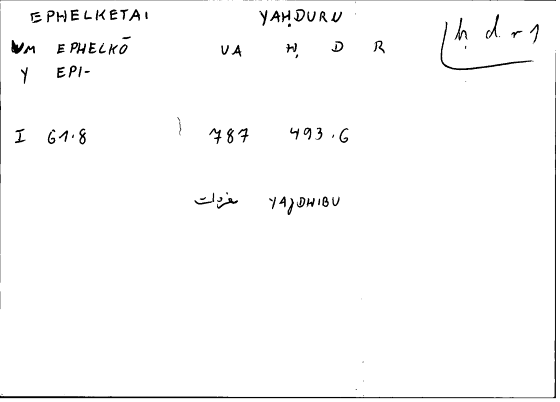 EPHELKETAI YAḤDURU ḥ d r 1
VM EPHELKŌ VA Ḥ D R
Y EPI-
I 61.8 787 493.6
مفردات YAJDHIBU